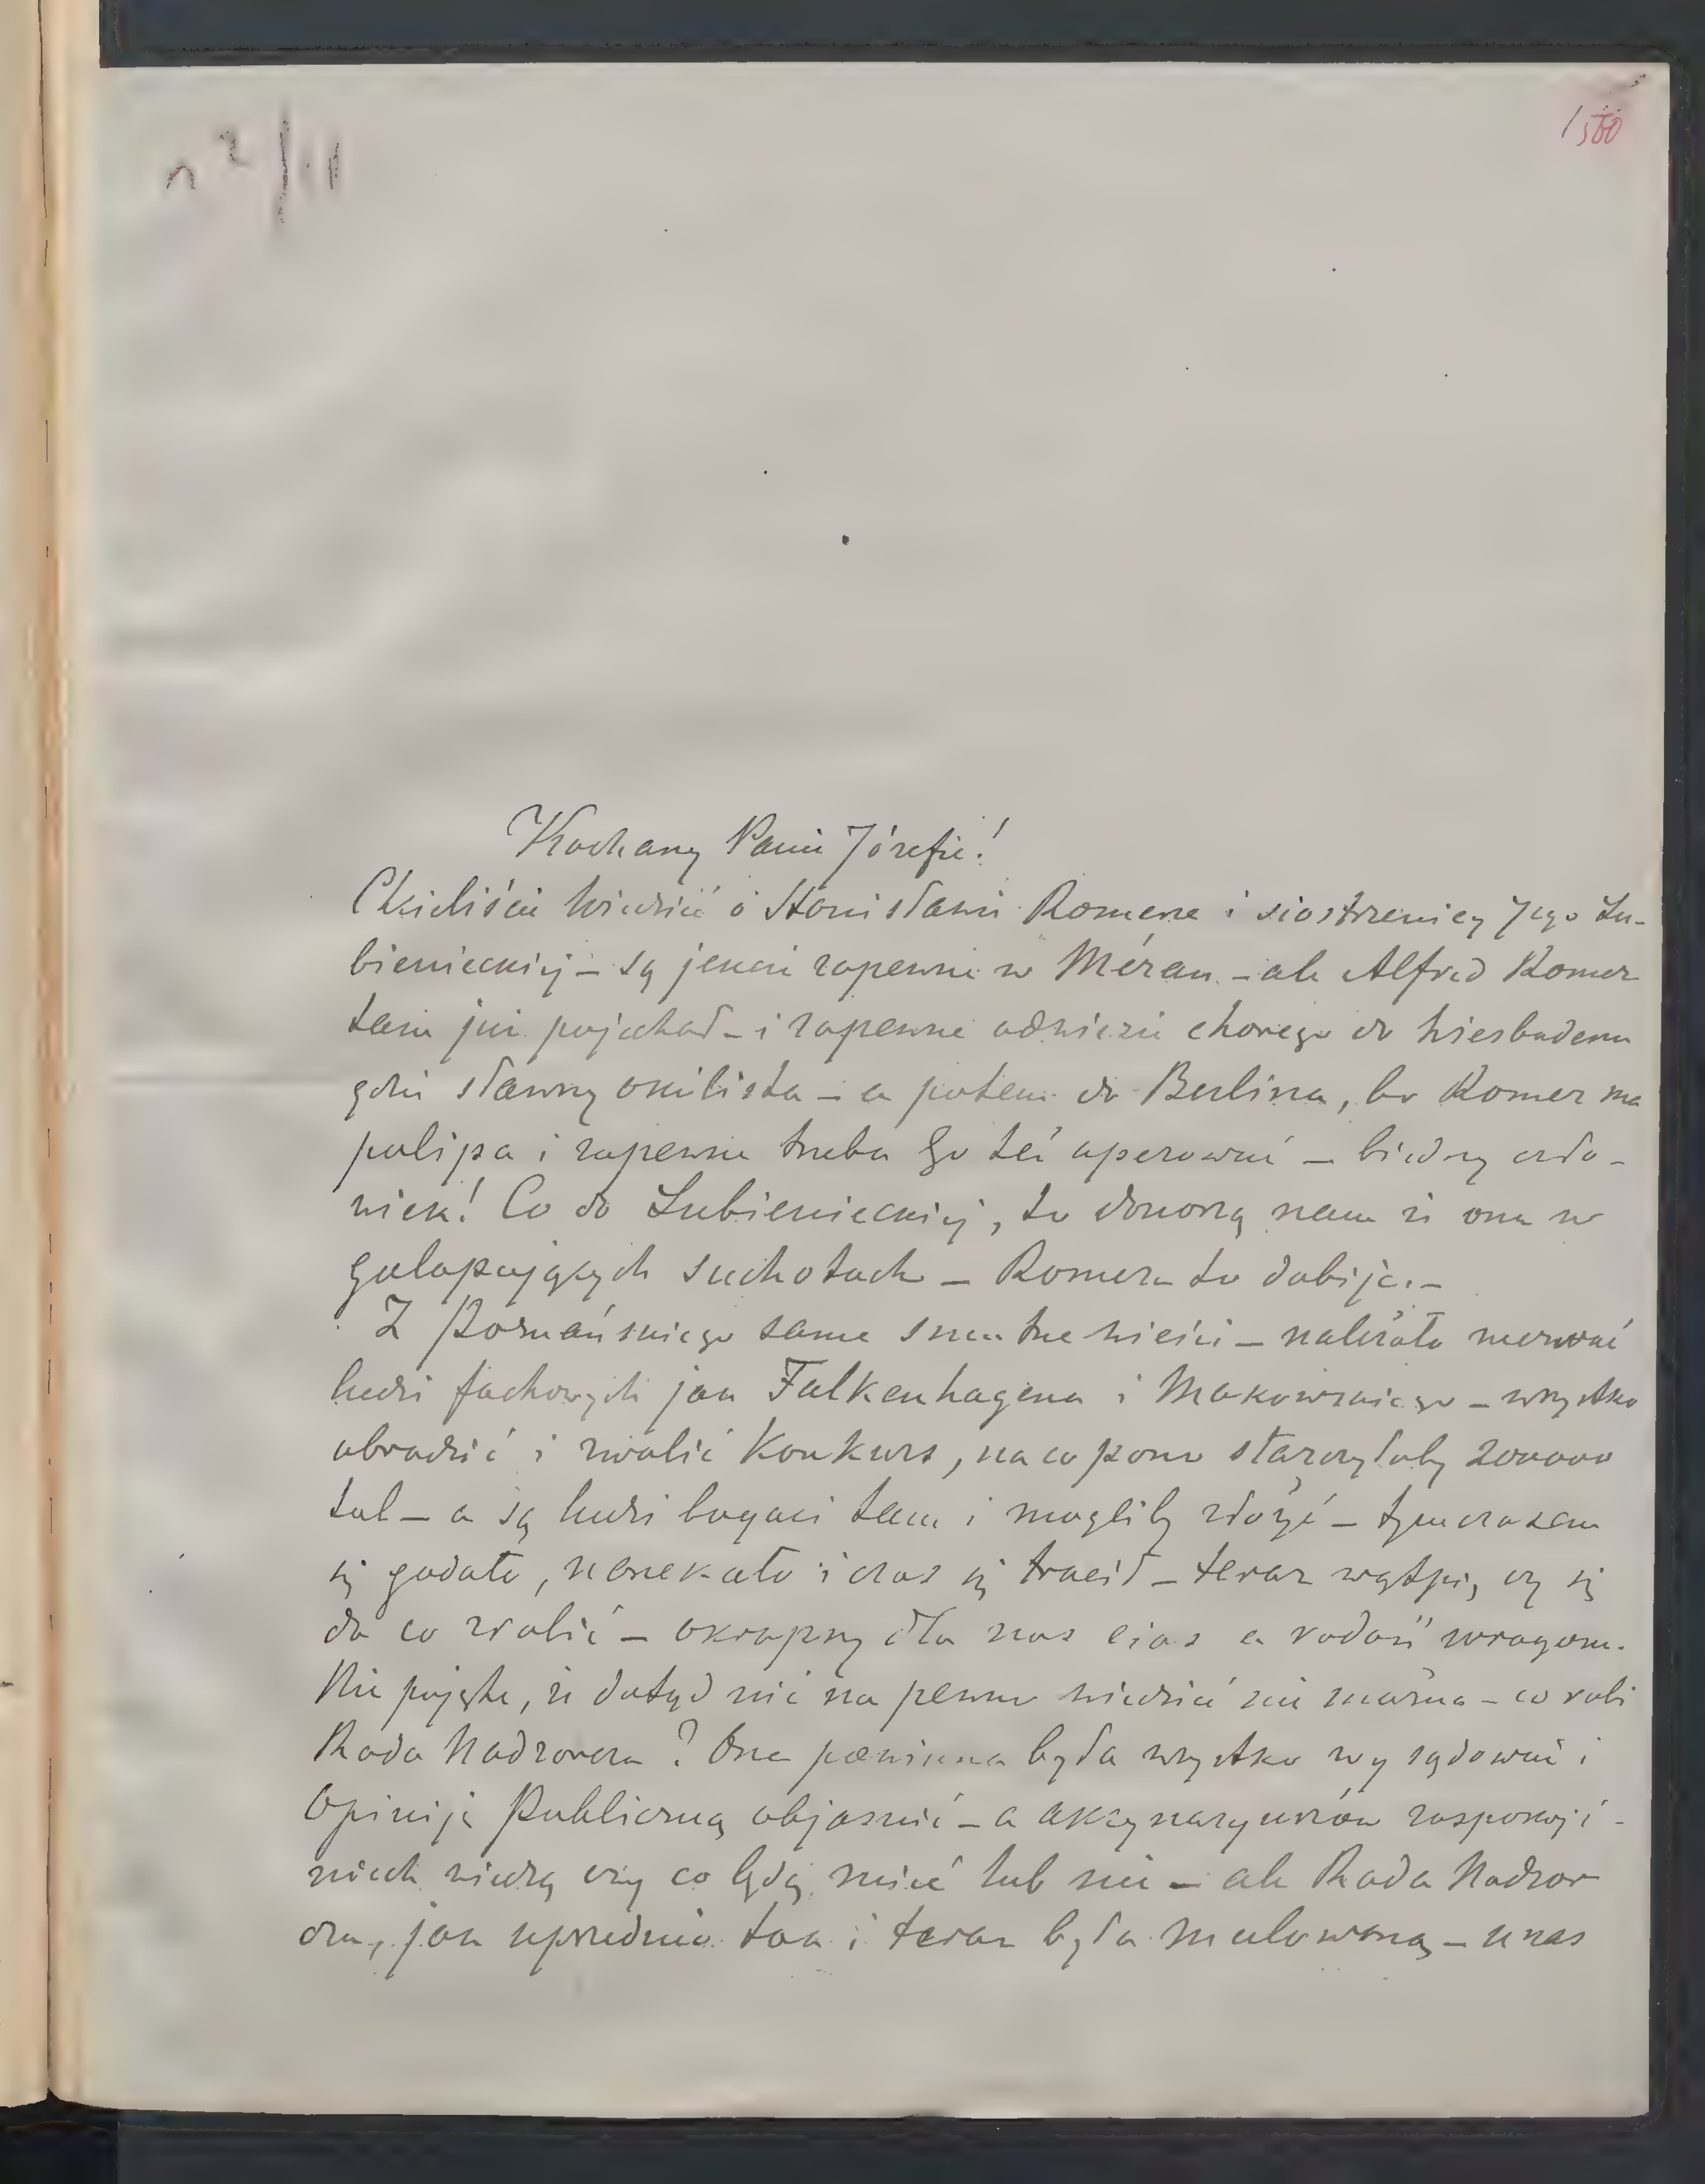 Kochany Panie Józefie!
Chcieliście wiedzieć o Stanisławie Romerze i siostrzenicy Jego Łu-
bienieckiej – są jeszcze zapewne w Méran – ale Alfred Romer
tam już pojechał – i zapewne odwiezie chorego do Wiesbadenu
gdzie sławny okulista – a potem do Berlina, bo Romer ma
polipa i zapewne trzeba Go też operować – biedny czło-
wiek! Co do Łubienieckiej, to donoszą nam że ona w
galopujących suchotach – Romera to dobije. –
Z Poznańskiego same smutne wieści – należało wezwać
ludzi fachowych jak Falkenhagena i Makowskiego – wszystko
obradzić i zwalić Konkurs, na co pono starczyłoby 200000
tal – a są ludzie bogaci tam i mogliby złożyć – tymczasem
się gadało, narzekało i czas się tracił – teraz wątpię, czy się
da co zrobić – okropny dla nas cios a radość wrogom.
Nie pojęte, że dotąd nic na pewno wiedzieć nie można – co robi
Rada Nadzorcza? Ona powinna była wszystko wy sądować i
Opiniję Publiczną objaśnić – a akcynaryuszów zaspokoić –
niech wiedzą czy co będą mieć lub nie – ale Rada Nadzor
cza, jak uprzednio tak i teraz była malowaną – u nas